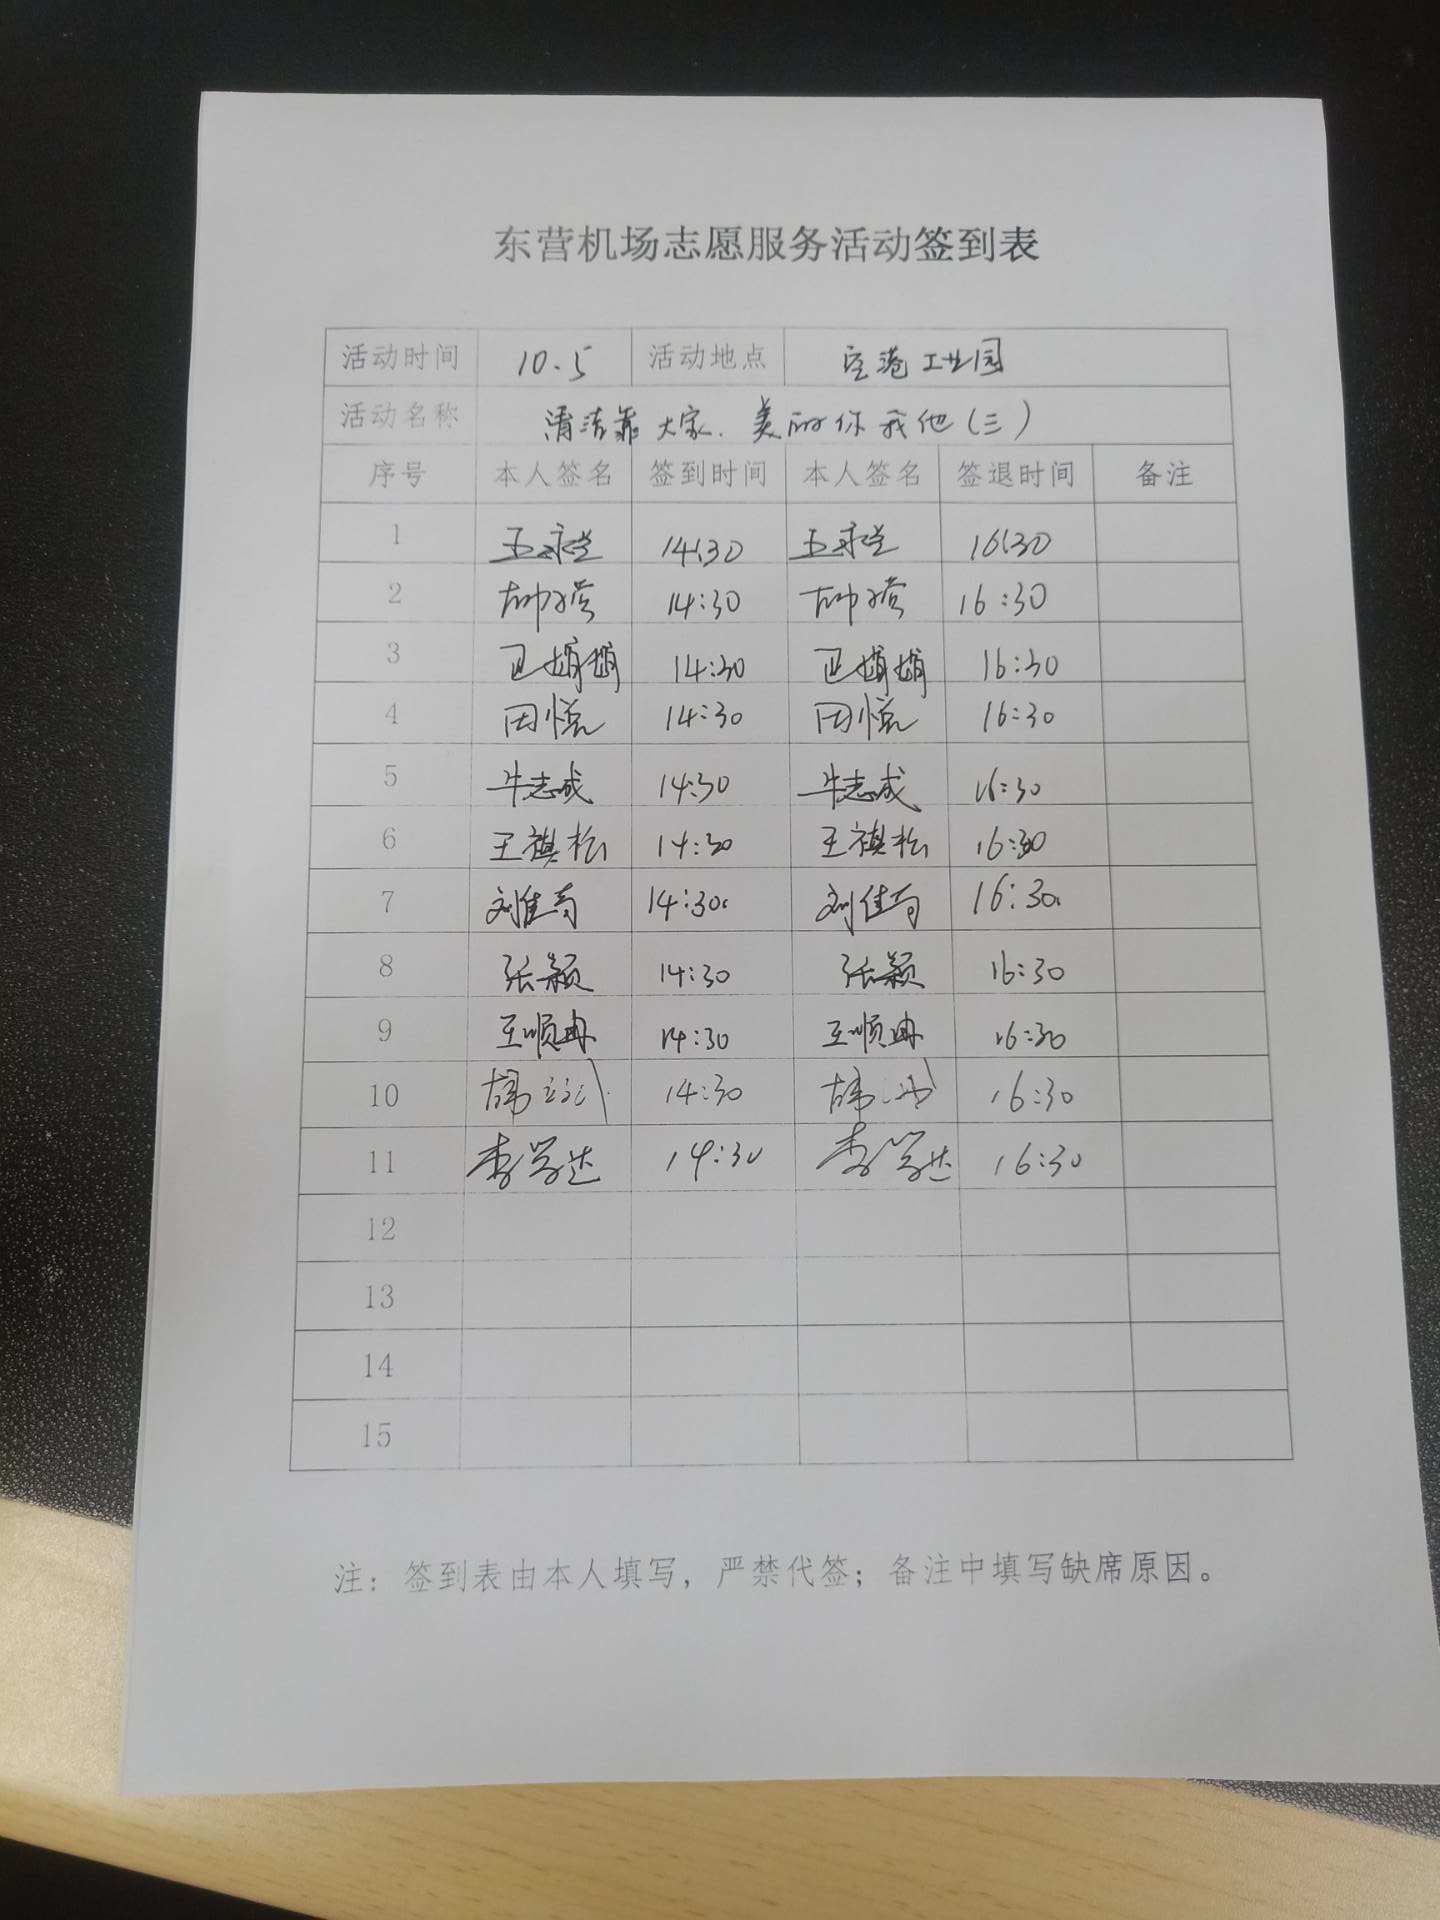 东营机场志愿服务活动签到表
活动时间 10.5 活动地点 空港工业园
活动名称 清洁靠大家.美丽你我他(三)
序号 本人签名 签到时间 本人签名 签退时间 备注
1 14:30 16:30
2 14:30 16:30
3 卫娟娟 14:30 卫娟娟 16:30
4 田悦 14:30 田悦 16:30
5 牛志成 14:30 牛志成 16:30
6 王祺松 14:30 王祺松 16:30
7 14:30 16:30
8 张颖 14:30 张颖 16:30
9 王顺冉 14:30 王顺冉 16:30
10 14:30 16:30
11 李学达 14:30 李学达 16:30
12
13
14
15
注：签到表由本人填写，严禁代签；备注中填写缺席原因。